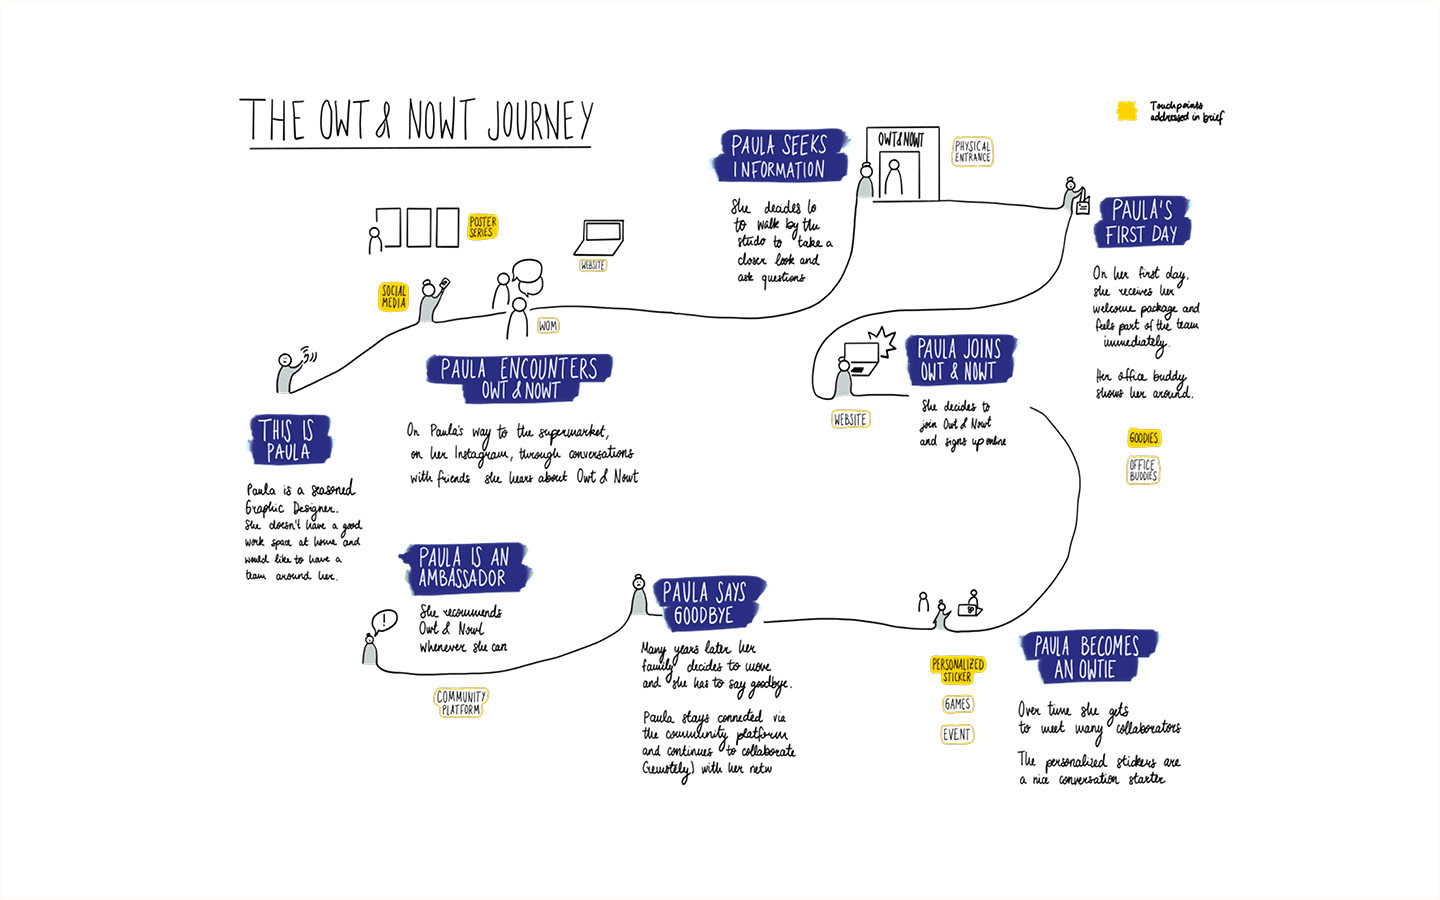 THE OWT & NOWT JOURNEY
Touchpoints
addressed in brief
POSTER
SERIES
SOCIAL
MEDIA
WEBSITE
WOM
THIS IS
PAULA
Paula is a seasoned
Graphic Designer.
She doesn't have a good
work space at home and
would like to have a
team around her.
PAULA ENCOUNTERS
OWT & NOWT
On Paula's way to the supermarket,
on her Instagram, through conversations
with friends she hears about Owt & Nowt
PAULA SEEKS
INFORMATION
She decides to
to walk by the
studo to take a
closer look and
ask questions
OWT & NOWT
PHYSICAL
ENTRANCE
PAULA'S
FIRST DAY
On her first day,
she receives her
welcome package and
feels part of the team
immediately.
Her office buddy
shows her around.
GOODIES
OFFICE
BUDDIES
PAULA JOINS
OWT & NOWT
She decides to
join Owt & Nowt
and signs up online
WEBSITE
PAULA BECOMES
AN OWTIE
Over time she gets
to meet many collaborators
The personalized stickers are
a nice conversation starter
PERSONALIZED
STICKER
GAMES
EVENT
PAULA SAYS
GOODBYE
Many years later her
family decides to move
and she has to say goodbye.
Paula stays connected via
the community platform
and continues to collaborate
(remotely) with her netw
PAULA IS AN
AMBASSADOR
She recommends
Owt & Nowt
whenever she can
!
COMMUNITY
PLATFORM